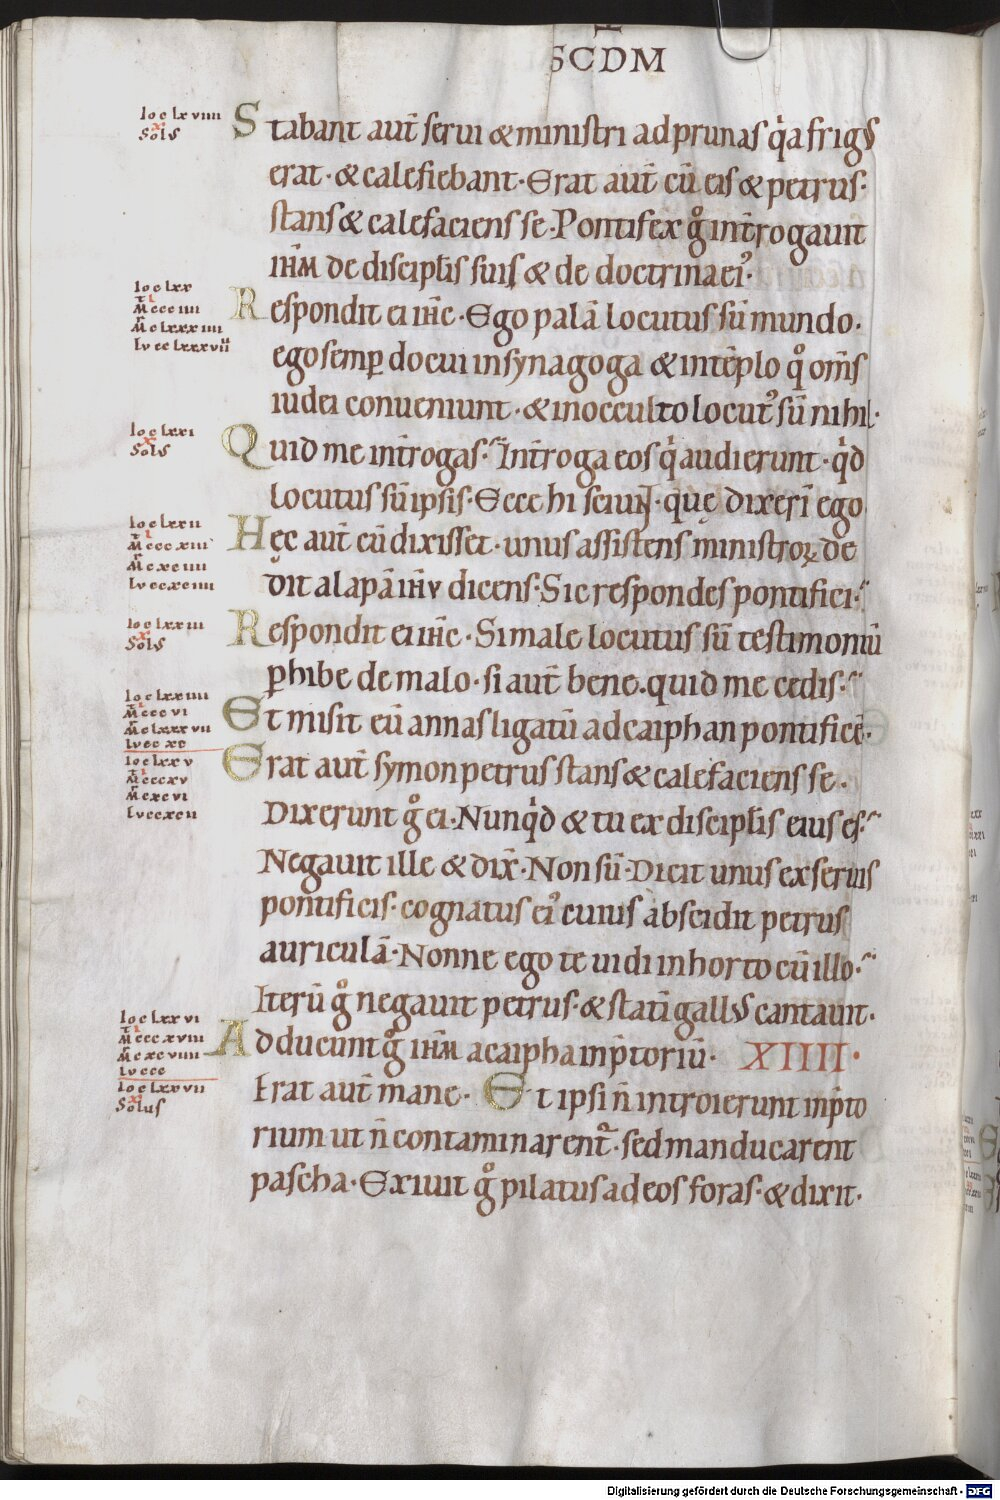 SCDM
Ioc lxviiii
Sol9
Stabant aut̄ serui &ministri adprunas qͥa frig9
erat· &calefiebant· Erat aut̄ cū eis &petrus·
stans& calefaciens se· Pontifex gͦ int̄rogauit
ihm̄ de discipl̄is suis & de doctrina ei9·
Ioc lxx
Mt ccciiii
Mr clxxxiiii
Lv cclxxxvii
Respondit ei ihc̄· Ego palā locutus sū mundo·
ego semꝑ docui insynagoga &intēplo qͦ oms̄
iudei conueniunt· &inocculto locut9 sū nihil·
Ioc lxxi
Sol9
Quid me int̄rogas· Int̄roga eos qͥ audierunt· qͥd
locutus sū ipsis· Ecce hi sciunt· quę dixerī ego
Ioc lxxii
Mt cccxiii
Mr cxciiii
Lv ccxciiii
Hęc aut̄ cū dixisset· unus assistens ministroꝝ de
dit alapā ihū dicens· Sic respondes pontifici·
Ioc lxxiii
Sol9
Respondit ei ihc̄· Si male locutus sū testimoniū
ꝑhibe de malo· si aut̄ bene· quid me cedis·
Ioc lxxiiii
Mt cccvi
Mr clxxxvii
Lv ccxc
Et misit eū annas ligatū adcaiphan pontificē·
Ioc lxxv
Mt cccxv
Mr cxcvi
Lv ccxcii
Erat aut̄ symon petrus stans& calefaciens se·
Dixerunt gͦ ei· Nunqͥd & tu ex discipl̄is eius es·
Negauit ille & dix̄· Non sū· Dicit unus ex seruis
pontificis· cognatus ei9 cuius abscidit petrus
auriculā· Nonne ego te uidi inhorto cū illo·
Iterū gͦ negauit petrus· &statī gall9 cantauit·
Ioc lxxvi
Mt cccxviii
Mr cxcviiii
Lv ccc
Adducunt gͦ ihm̄ acaipha inp̄toriū· XIIII·
Ioc lxxvii
Solus
Erat aut̄ mane· Et ipsi n̄ introierunt inp̄to
rium ut n̄ contaminarent᷑· sed manducarent
pascha· Exiuit gͦ pilatus ad eos foras· &dixit·
Digitalisierung gefördert durch die Deutsche Forschungsgemeinschaft - DFG